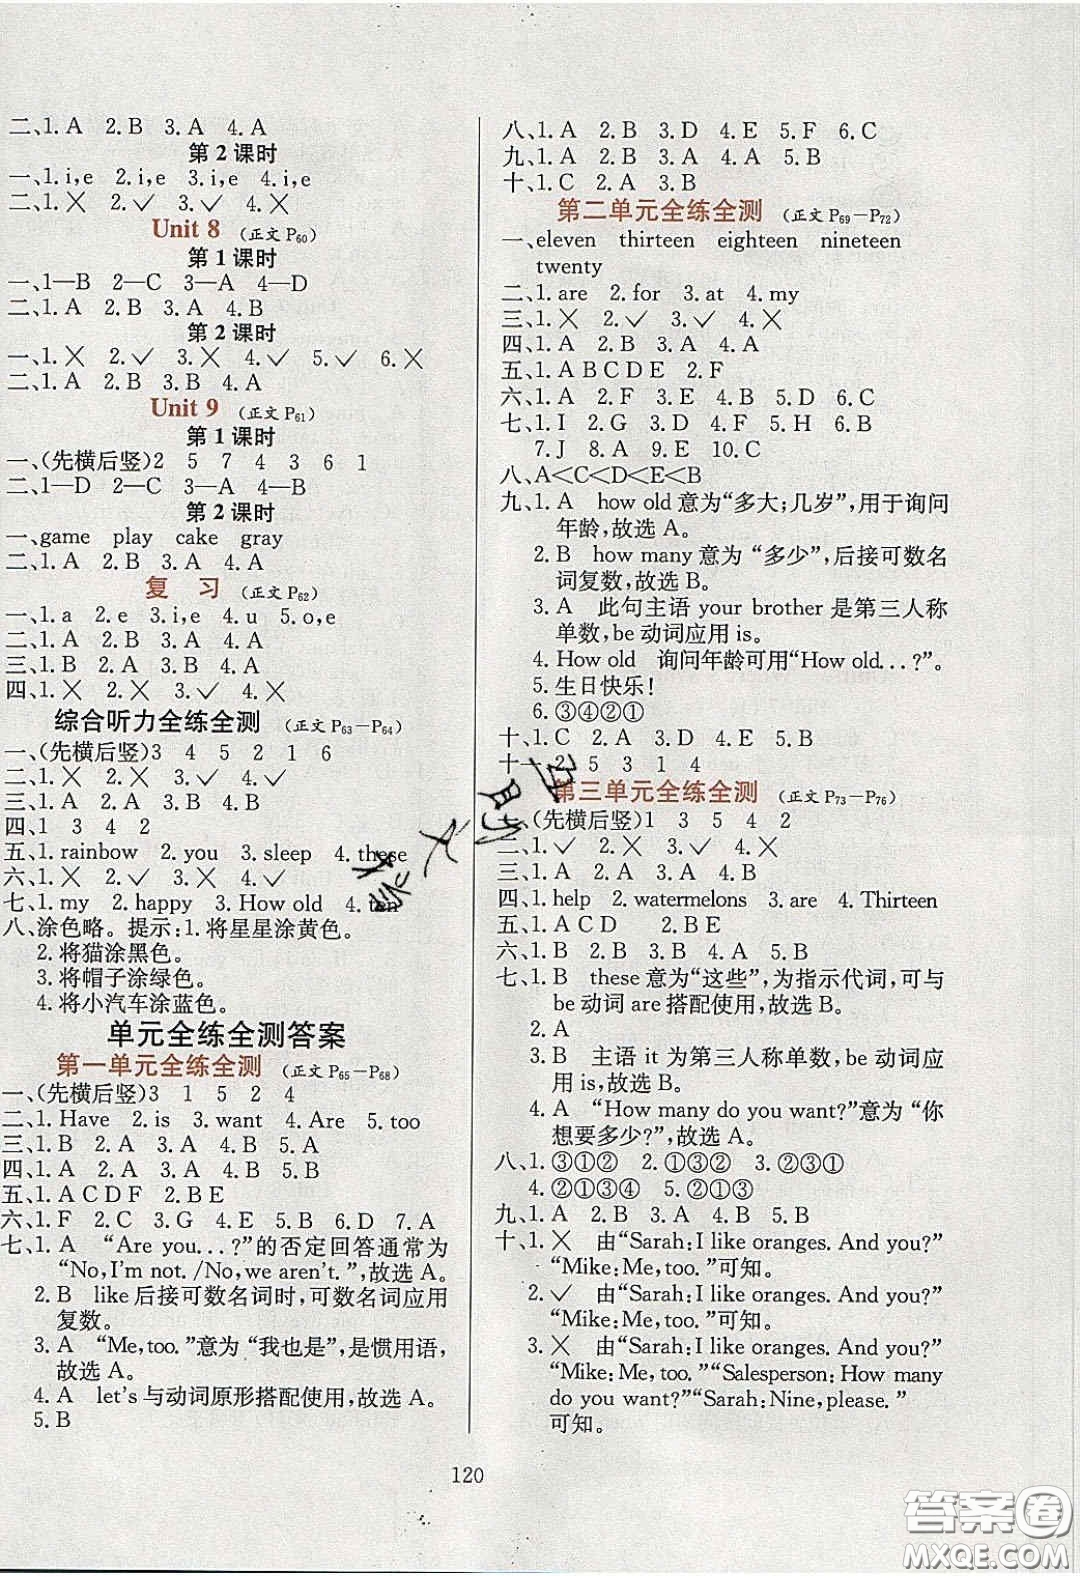 二、1. A 2. B 3. A 4. A
第 2 课时
一、1. i,e 2. i,e 3. i,e 4. i,e
二、1. ╳ 2. ✓ 3. ✓ 4. ╳
Unit 8 (正文 P60)
第 1 课时
一、1—B 2—C 3—A 4—D
二、1. A 2. B 3. A 4. B
第 2 课时
一、1. ╳ 2. ✓ 3. ╳ 4. ✓ 5. ✓ 6. ╳
二、1. A 2. B 3. B 4. A
Unit 9 (正文 P61)
第 1 课时
一、(先横后竖)2 5 7 4 3 6 1
二、1—D 2—A 3—B 4—C
第 2 课时
一、game play cake gray
二、1. A 2. B 3. A 4. A
复 习 (正文 P62)
一、1. a 2. e 3. i,e 4. u 5. o,e
二、1. A 2. B 3. A 4. A
三、1. B 2. A 3. B 4. A
四、1. ╳ 2. ╳ 3. ✓ 4. ╳
综合听力全练全测 (正文 P63－P64)
一、(先横后竖)3 4 5 2 1 6
二、1. ╳ 2. ╳ 3. ✓ 4. ✓
三、1. A 2. A 3. B 4. B
四、1 3 4 2
五、1. rainbow 2. you 3. sleep 4. these
六、1. ╳ 2. ✓ 3. ╳ 4. ✓
七、1. my 2. happy 3. How old 4. ten
八、涂色略。提示:1. 将星星涂黄色。
2. 将猫涂黑色。
3. 将帽子涂绿色。
4. 将小汽车涂蓝色。
单元全练全测答案
第一单元全练全测 (正文 P65－P68)
一、(先横后竖)3 1 5 2 4
二、1. Have 2. is 3. want 4. Are 5. too
三、1. B 2. A 3. A 4. B 5. A
四、1. A 2. A 3. A 4. B 5. B
五、1. A C D F 2. B E
六、1. F 2. C 3. G 4. E 5. B 6. D 7. A
七、1. A “Are you. . . ?”的否定回答通常为
“No, I'm not. /No, we aren't. ”,故选 A。
2. B like 后接可数名词时,可数名词应用
复数。
3. A “Me, too.”意为“我也是”,是惯用语,
故选 A。
4. A let's 与动词原形搭配使用,故选 A。
5. B
八、1. A 2. B 3. D 4. E 5. F 6. C
九、1. A 2. B 3. A 4. A 5. B
十、1. C 2. A 3. B
第二单元全练全测 (正文 P69－P72)
一、eleven thirteen eighteen nineteen
twenty
二、1. are 2. for 3. at 4. my
三、1. ╳ 2. ✓ 3. ✓ 4. ╳
四、1. A 2. B 3. A 4. A
五、1. A B C D E 2. F
六、1. A 2. F 3. E 4. D 5. B 6. C
七、1. I 2. G 3. D 4. F 5. H 6. B
7. J 8. A 9. E 10. C
八、A＜C＜D＜E＜B
九、1. A how old 意为“多大;几岁”,用于询问
年龄,故选 A。
2. B how many 意为“多少”,后接可数名
词复数,故选 B。
3. A 此句主语 your brother 是第三人称
单数,be 动词应用 is。
4. How old 询问年龄可用“How old. . . ?”。
5. 生日快乐!
6. ③④②①
十、1. C 2. A 3. D 4. E 5. B
十一、2 5 3 1 4
第三单元全练全测 (正文 P73－P76)
一、(先横后竖)1 3 5 4 2
二、1. ✓ 2. ╳ 3. ╳ 4. ✓ 5. ╳
三、1. A 2. A 3. A 4. B
四、1. help 2. watermelons 3. are 4. Thirteen
五、1. A C D 2. B E
六、1. B 2. B 3. B 4. A 5. B
七、1. B these 意为“这些”,为指示代词,可与
be 动词 are 搭配使用,故选 B。
2. A
3. B 主语 it 为第三人称单数,be 动词应
用 is,故选 B。
4. A “How many do you want?”意为“你
想要多少?”,故选 A。
八、1. ③①② 2. ①③② 3. ②③①
4. ②①③④ 5. ②①③
九、1. A 2. B 3. A 4. B 5. B
十、1. ╳ 由“Sarah:I like oranges. And you?”
“Mike:Me, too. ”可知。
2. ✓ 由“Sarah:I like oranges. And you?”
“Mike:Me, too. ”可知。
3. ╳ 由“Sarah:I like oranges. And you?”
“Mike:Me, too. ”“Salesperson:How many
do you want?”“Sarah:Nine, please. ”
可知。
120
答案圈
MXQE.COM